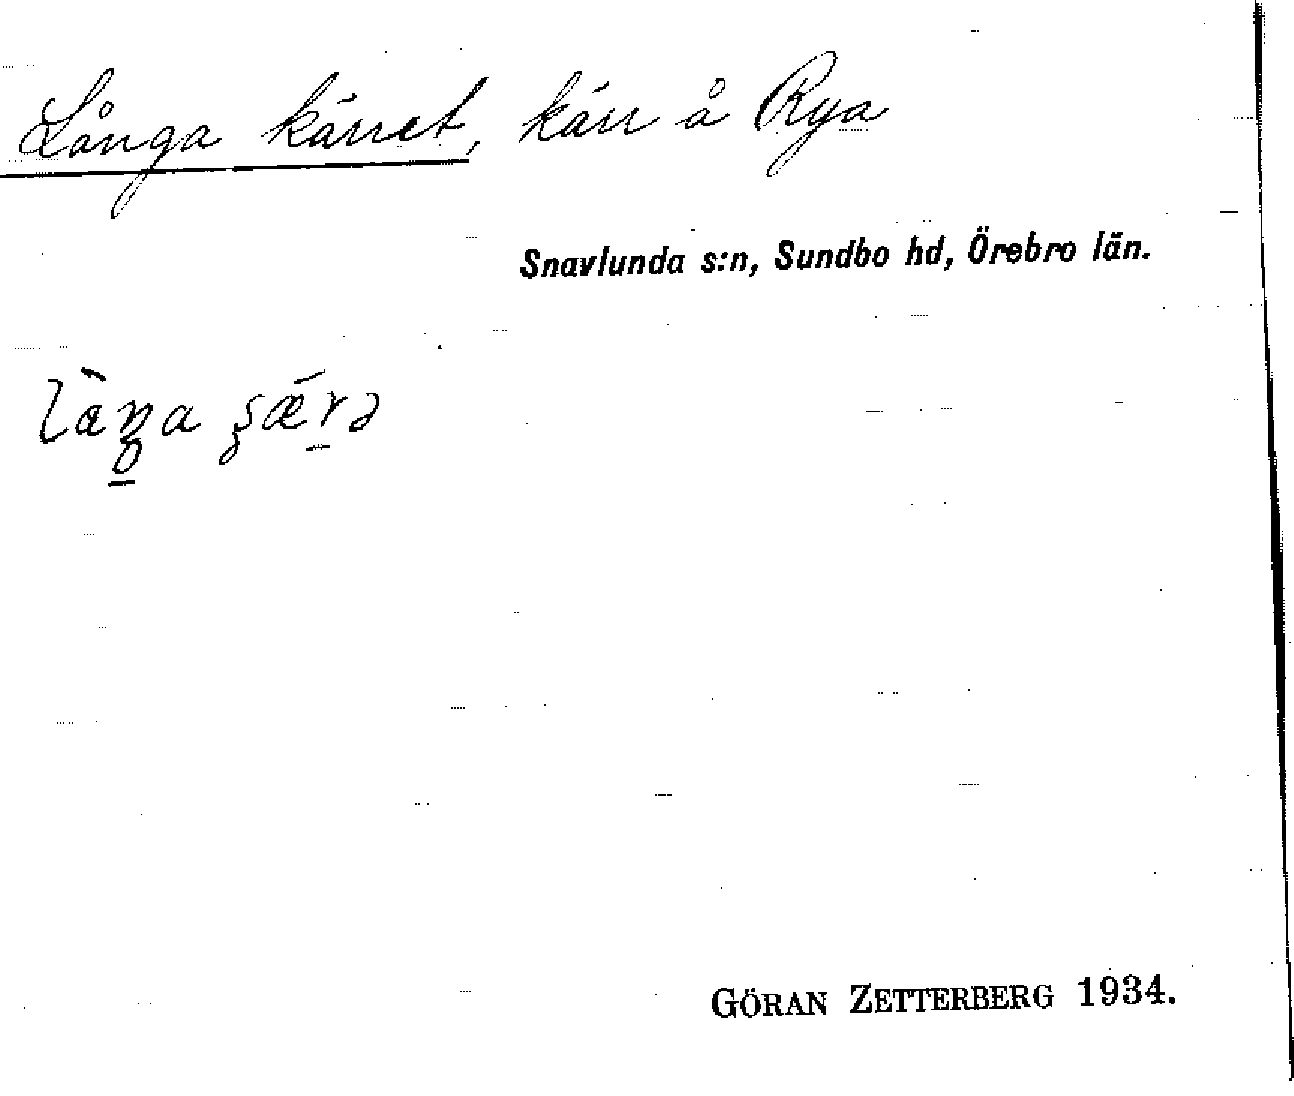 Långa kärret, kärr å Rya
Snavlunda s:n, Sundbo hd, Örebro län.
GÖRAN ZETTERBERG 1934.